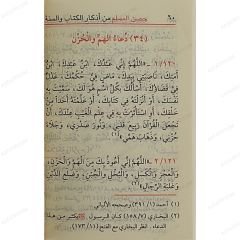 ٦٠ حصن المسلم من أذكار الكتاب والسنة
(٣٤) دُعَاءُ الْهَمِّ وَالْحُزْنِ
١٢٠/١- «اللَّهُمَّ إِنِّي عَبْدُكَ، ابْنُ عَبْدِكَ، ابْنُ
أَمَتِكَ، نَاصِيَتِي بِيَدِكَ، مَاضٍ فِيَّ حُكْمُكَ، عَدْلٌ
فِيَّ قَضَاؤُكَ، أَسْأَلُكَ بِكُلِّ اسْمٍ هُوَ لَكَ، سَمَّيْتَ بِهِ
خَلْقِكَ، أَوِ اسْتَأْثَرْتَ بِهِ فِي عِلْمِ الْغَيْبِ عِنْدَكَ، أَنْ
تَجْعَلَ الْقُرْآنَ رَبِيعَ قَلْبِي، وَنُورَ صَدْرِي، وَجَلَاءَ
حُزْنِي، وَذَهَابَ هَمِّي»(١).
١٢١/٢- «اللَّهُمَّ إِنِّي أَعُوذُ بِكَ مِنَ الْهَمِّ وَالْحَزَنِ،
وَالْعَجْزِ وَالْكَسَلِ، وَالْبُخْلِ وَالْجُبْنِ، وَضَلَعِ الدَّيْنِ
وَغَلَبَةِ الرِّجَالِ»(٢).
(١) أحمد (٣٩١/١) وصححه الألباني.
(٢) البخاري (١٥٨/٧) كان الرسول ﷺ يكثر من هذا
الدعاء. انظر البخاري مع الفتح (١٧٣/١١)